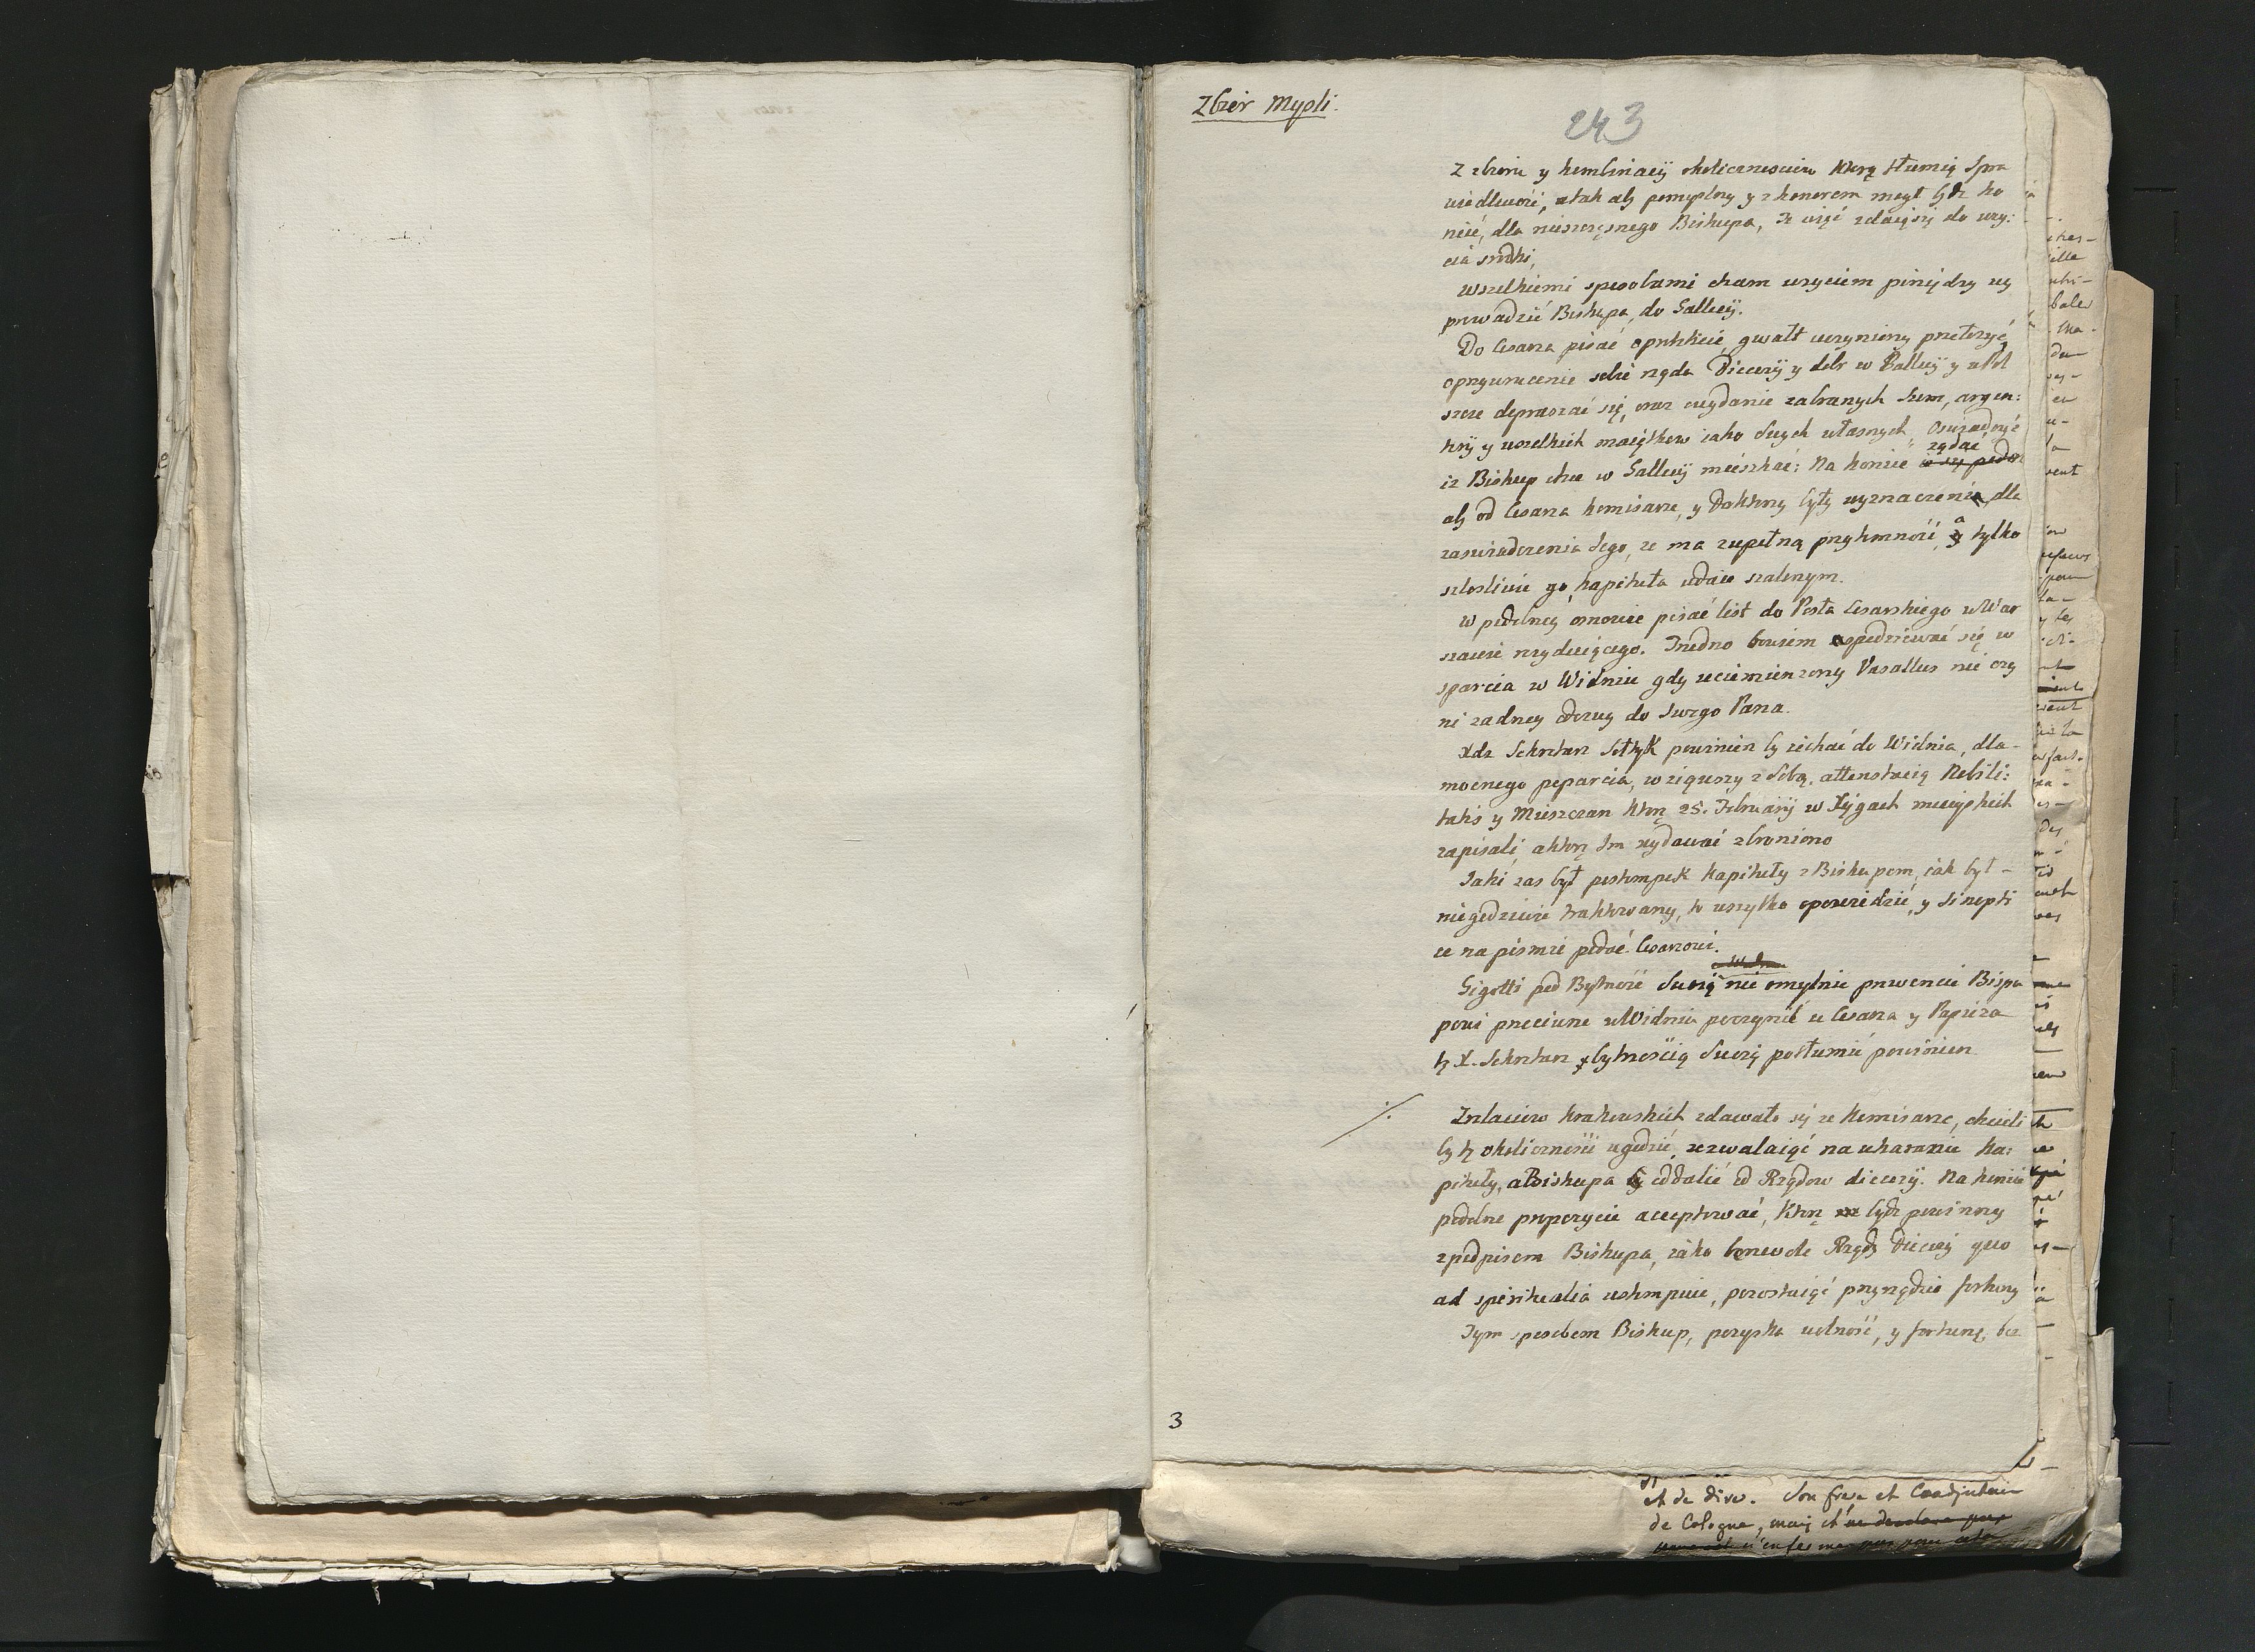 Zbiór Mysli.
243
Z zbioru y kombinacÿ okolicznosciow ktorę tłumią Spra
wiedliwość, a tak aby pomyslny y z honorem mogł bydz ko
niec, dla nieszczęsnego Biskupa, te więć zdaię się do uzy:
cia srodki,
wszelkiemi sposobami cham uzyciem piniędzy wy
prowadzić Biskupa, do Gallicÿ.
Do Cesarza pisać o protekcie, gwałt uczyniony przełozyć,
o przywrocenie sobie rządu Diecezÿ y dobr w Gallicÿ y w Pol
szcze dopraszać się, oraz wydanie zabranych Sum, argen:
trÿ y wszelkich maiątkow iako Swych własnych, Oswiadczyć
iz Biskup chce w Gallicÿ mieszkać: Na koniec
ządac
aby od Cesarza komisarze, y Doktorzy były wyznaczeni, dla
zaswiadczenia tego, ze ma zupełną przytomność, a tylko
złosliwie go kapituła udaie szalonym.
w podobney osnowie pisać list do Posła Cesarskiego w War
szawie rezyduiącego. Trudno bowiem spodziewać się w
sparcia w Widniu gdy uciemienzony Vasallus nie czy
ni zadney odezwy do Swego Pana.
Xdz Sekretarz Sołtyk powinien by iechać do Widnia, dla
mocnego poparcia, wziąwszy z Sobą attestacią Nobili:
tatis y Mieszczan ktorę 25. Februarÿ w Xięgach mieyskich
zapisali, a ktorę Im wydawać zbroniono
Jaki zas był postempek kapituły z Biskupem, iak był
niegodziwie traktowany, to wszytko opowiedzieć, y Sinopti
ce na pismie podać Cesarzowi.
Gigotti pod Bytność Swoię nie omylnie prewencie Bisku
powi przeciwne w Widniu poczynił u Cesarza y Papieza
tę X. Sekretarz bytnością Swoią potłumić powinien.
Z relaciow krakowskich zdawało się ze komisarze, chcieli
by tę okoliczność ugodzić, zezwalaiąć na ukaranie ka:
pituły, a Biskupa oddalić od Rządow diecezÿ. Na koniec
podobne propozycie acceptować, ktorę bydz powinny
z podpisem Biskupa, iako benevole Rządy Diecezÿ quo
ad spiritualia ustempuie, pozostaiąć przy rządzie fortuny
Tym sposobem Biskup, pozyska wolność, y fortunę, bez
3
et de dire. Son frere et Coadjuteur
de Cologne, mais